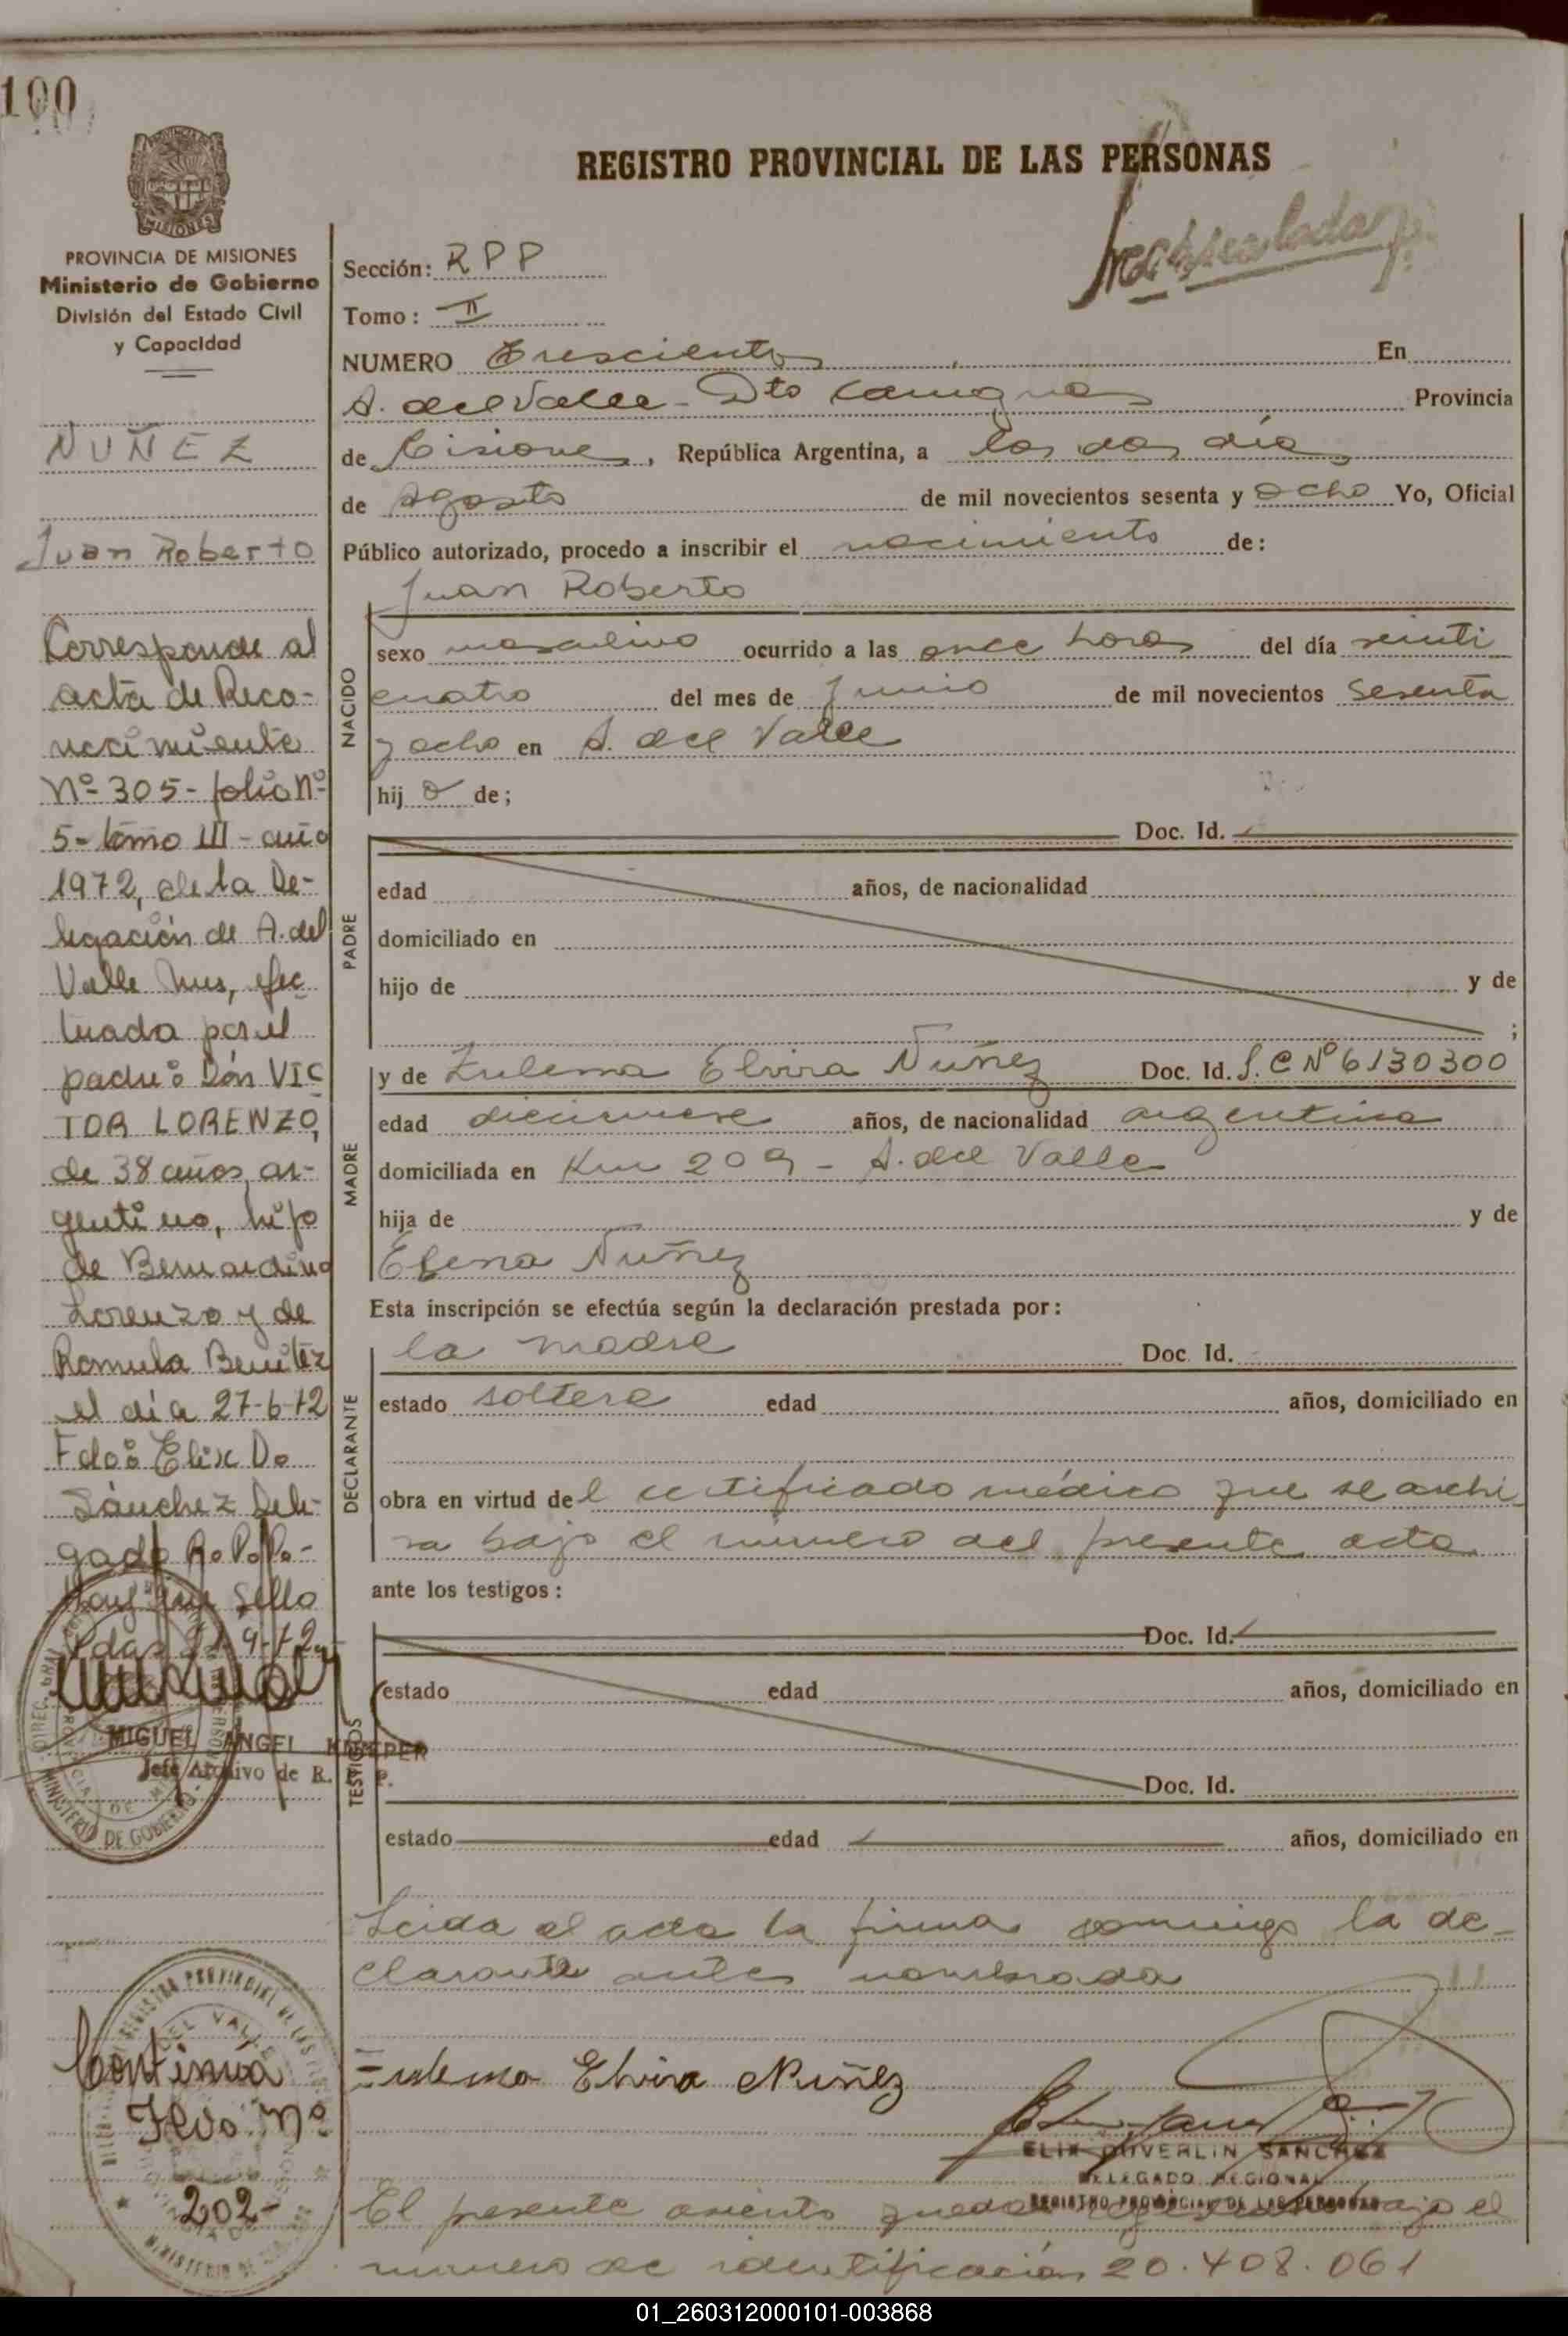 100
PROVINCIA DE MISIONES
Ministerio de Gobierno
División del Estado Civil
y Capacidad
NUÑEZ
Juan Roberto
Corresponde al
acta de Reco-
nocimiento
Nº 305 - folio Nº
5 - tomo III - año
1972, de la De-
legación de A. del
Valle Mnes, efec
tuada por el
padre: Dón VIC
TOR LORENZO,
de 38 años, ar-
gentino, hijo
de Bernardino
Lorenzo y de
Romula Benitez
el día 27-6-72
Fdo: Elix D.
Sánchez Dele-
gado R.P.P.-
Hay un Sello
Pdas 9-72
MIGUEL ANGEL KNEPER
Jefe Archivo de R. P. P.
MINISTERIO DE GOBIERNO
Continúa
Flio. Nº
202-
REGISTRO PROVINCIAL DE LAS PERSONAS
Sección: RPP
Tomo: II
NUMERO Trescientos En
A. del Valle - Dto Cainguas Provincia
de Misiones, República Argentina, a los dos días
de Agosto de mil novecientos sesenta y ocho Yo, Oficial
Público autorizado, procedo a inscribir el nacimiento de:
Juan Roberto
NACIDO
sexo masculino ocurrido a las once horas del día veinti
cuatro del mes de Junio de mil novecientos sesenta
y ocho en A. del Valle
hij o de;
PADRE
Doc. Id.
edad años, de nacionalidad
domiciliado en
hijo de y de
;
MADRE
y de Zulema Elvira Nuñez Doc. Id. L.C Nº 6130300
edad diecinueve años, de nacionalidad argentina
domiciliada en Km 209 - A. del Valle
hija de y de
Elena Nuñez
Esta inscripción se efectúa según la declaración prestada por:
DECLARANTE
la madre Doc. Id.
estado soltera edad años, domiciliado en
obra en virtud del certificado médico que se archi
va bajo el numero del presente acta
ante los testigos:
TESTIGOS
Doc. Id.
estado edad años, domiciliado en
Doc. Id.
estado edad años, domiciliado en
Leida el acta la firma conmigo la de-
clarante antes nombrada
Zulema Elvira Nuñez
ELIX DUVERLIN SANCHEZ
DELEGADO REGIONAL
REGISTRO PROVINCIAL DE LAS PERSONAS
El presente asiento queda registrado bajo el
numero de identificación 20.408.061
01_260312000101-003868